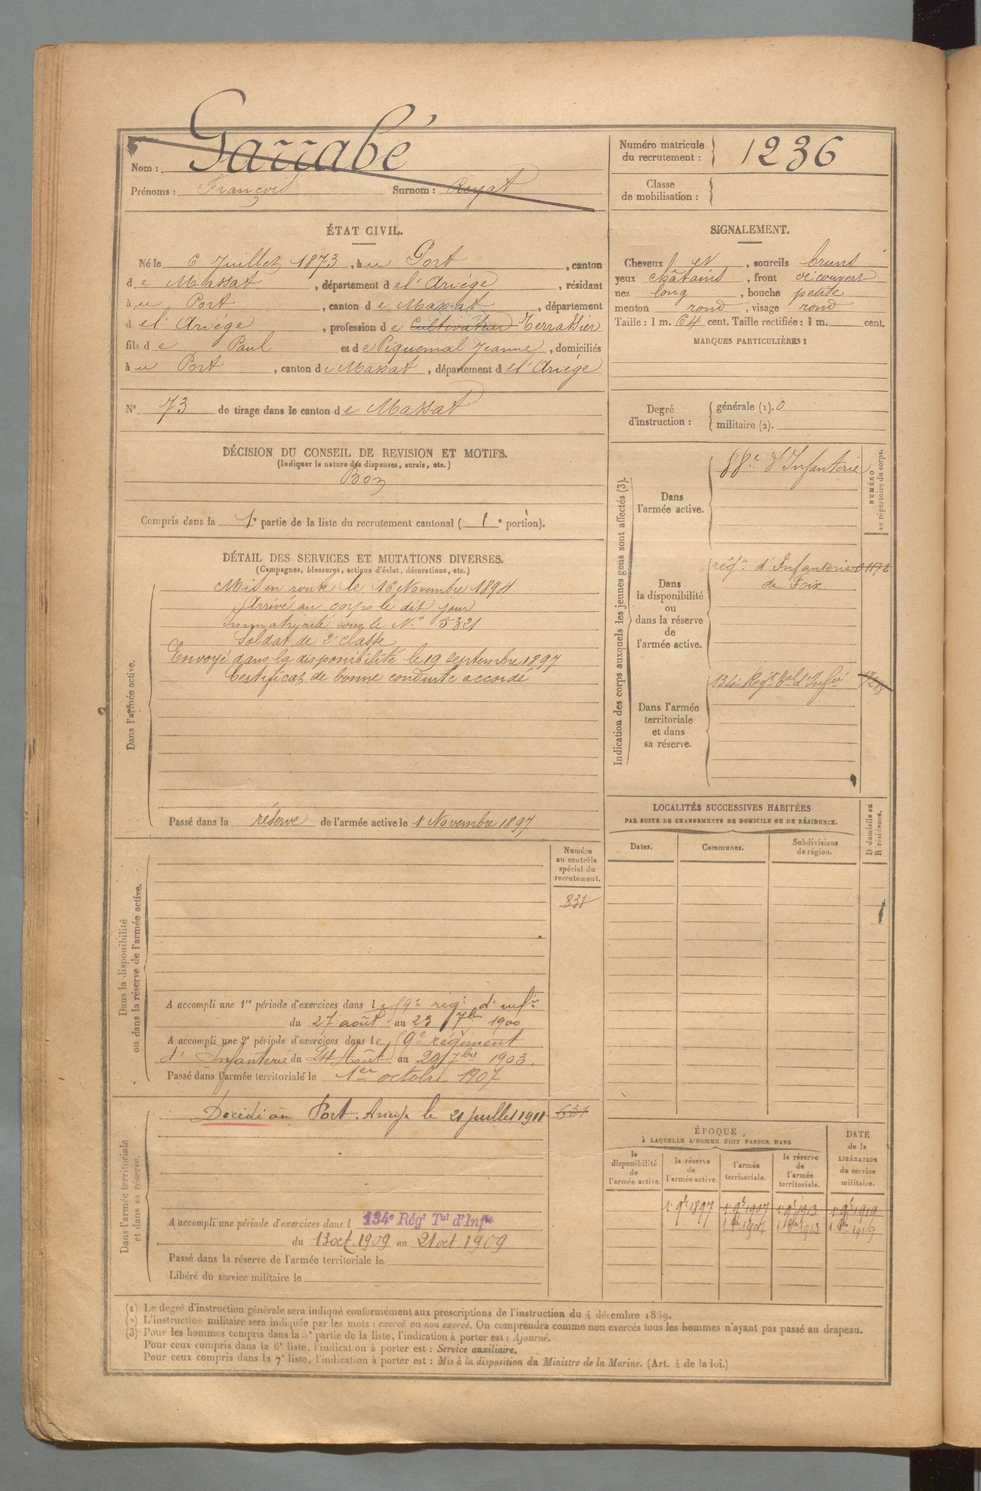 Nom : Garrabé
Prénoms : François Surnom : Royat
Numéro matricule du recrutement : 1236
Classe de mobilisation :
ÉTAT CIVIL.
Né le 6 Juillet 1873, à u Port, canton
d e Massat, département d el'Ariège, résidant
à u Port, canton d e Massat, département
d el'Ariège, profession d e Cultivateur Terrassier
fils d e Paul et d e Piquemal Jeanne, domiciliés
à u Port, canton d e Massat, département d el'Ariège
N° 73 de tirage dans le canton d e Massat
SIGNALEMENT.
Cheveux et, sourcils bruns
yeux châtains, front découvert
nez long, bouche petite
menton rond, visage rond
Taille : 1 m. 64 cent. Taille rectifiée : 1 m. cent.
MARQUES PARTICULIÈRES :
Degré d'instruction : générale (1). 0
militaire (2).
DÉCISION DU CONSEIL DE REVISION ET MOTIFS.
(Indiquer la nature des dispenses, sursis, etc.)
Bon
Compris dans la 1e partie de la liste du recrutement cantonal ( 1e portion).
DÉTAIL DES SERVICES ET MUTATIONS DIVERSES.
(Campagnes, blessures, actions d'éclat, décorations, etc.)
Dans l'armée active.
Mis en route le 16 Novembre 1894
Arrivé au corps le dit jour
Immatriculé sous le N° 5321
Soldat de 2e classe
Envoyé dans la disponibilité le 19 septembre 1897
Certificat de bonne conduite accordé
Passé dans la réserve de l'armée active le 1 Novembre 1897
Indication des corps auxquels les jeunes gens sont affectés (3).
NUMÉRO au répertoire du corps.
Dans l'armée active.
88e d'Infanterie
Dans la disponibilité ou dans la réserve de l'armée active.
régt d'Infanterie
de Foix
Dans l'armée territoriale et dans sa réserve.
134e Régt Tal d'Infie
LOCALITÉS SUCCESSIVES HABITÉES
PAR SUITE DE CHANGEMENTS DE DOMICILE OU DE RÉSIDENCE.
Dates. Communes. Subdivisions de région. D domicile ou R résidence.
Dans la disponibilité ou dans la réserve de l'armée active.
Numéro au contrôle spécial du recrutement.
831
A accompli une 1re période d'exercices dans l e 59e régt d'infie
du 27 août au 23 7bre 1900
A accompli une 2e période d'exercices dans l e 59e Régiment
d'Infanterie du 24 Août au 20 7bre 1903.
Passé dans l'armée territoriale le 1er octobre 1907
Dans l'armée territoriale et dans sa réserve.
Décédé au Port, Ariège le 21 juillet 1911
631
A accompli une période d'exercices dans l 134e Régt Tal d'Infie
du 13 oct 1909 au 21 oct 1909
Passé dans la réserve de l'armée territoriale le
Libéré du service militaire le
ÉPOQUE
À LAQUELLE L'HOMME DOIT PASSER DANS
DATE de la LIBÉRATION du service militaire.
la disponibilité de l'armée active. la réserve de l'armée active. l'armée territoriale. la réserve de l'armée territoriale.
1 9bre 1897 1 9bre 1907 1 9bre 1913 1 9bre 1919
(1) Le degré d'instruction générale sera indiqué conformément aux prescriptions de l'instruction du 4 décembre 1889.
(2) L'instruction militaire sera indiquée par les mots : exercé ou non exercé. On comprendra comme non exercés tous les hommes n'ayant pas passé au drapeau.
(3) Pour les hommes compris dans la 5e partie de la liste, l'indication à porter est : Ajourné.
Pour ceux compris dans la 6e liste, l'indication à porter est : Service auxiliaire.
Pour ceux compris dans la 7e liste, l'indication à porter est : Mis à la disposition du Ministre de la Marine. (Art. 4 de la loi.)